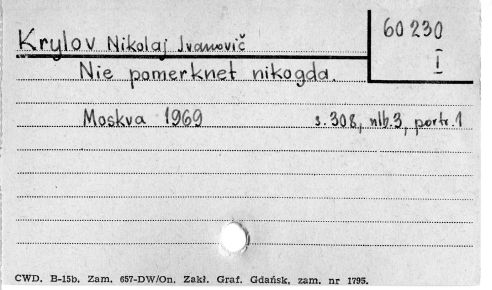 Krylov Nikolaj Ivanovič
60 230
I
Nie pomerknet nikogda.
Moskva 1969 s. 308, nlb. 3, portr. 1
CWD. B-15b. Zam. 657-DW/On. Zakł. Graf. Gdańsk, zam. nr 1795.